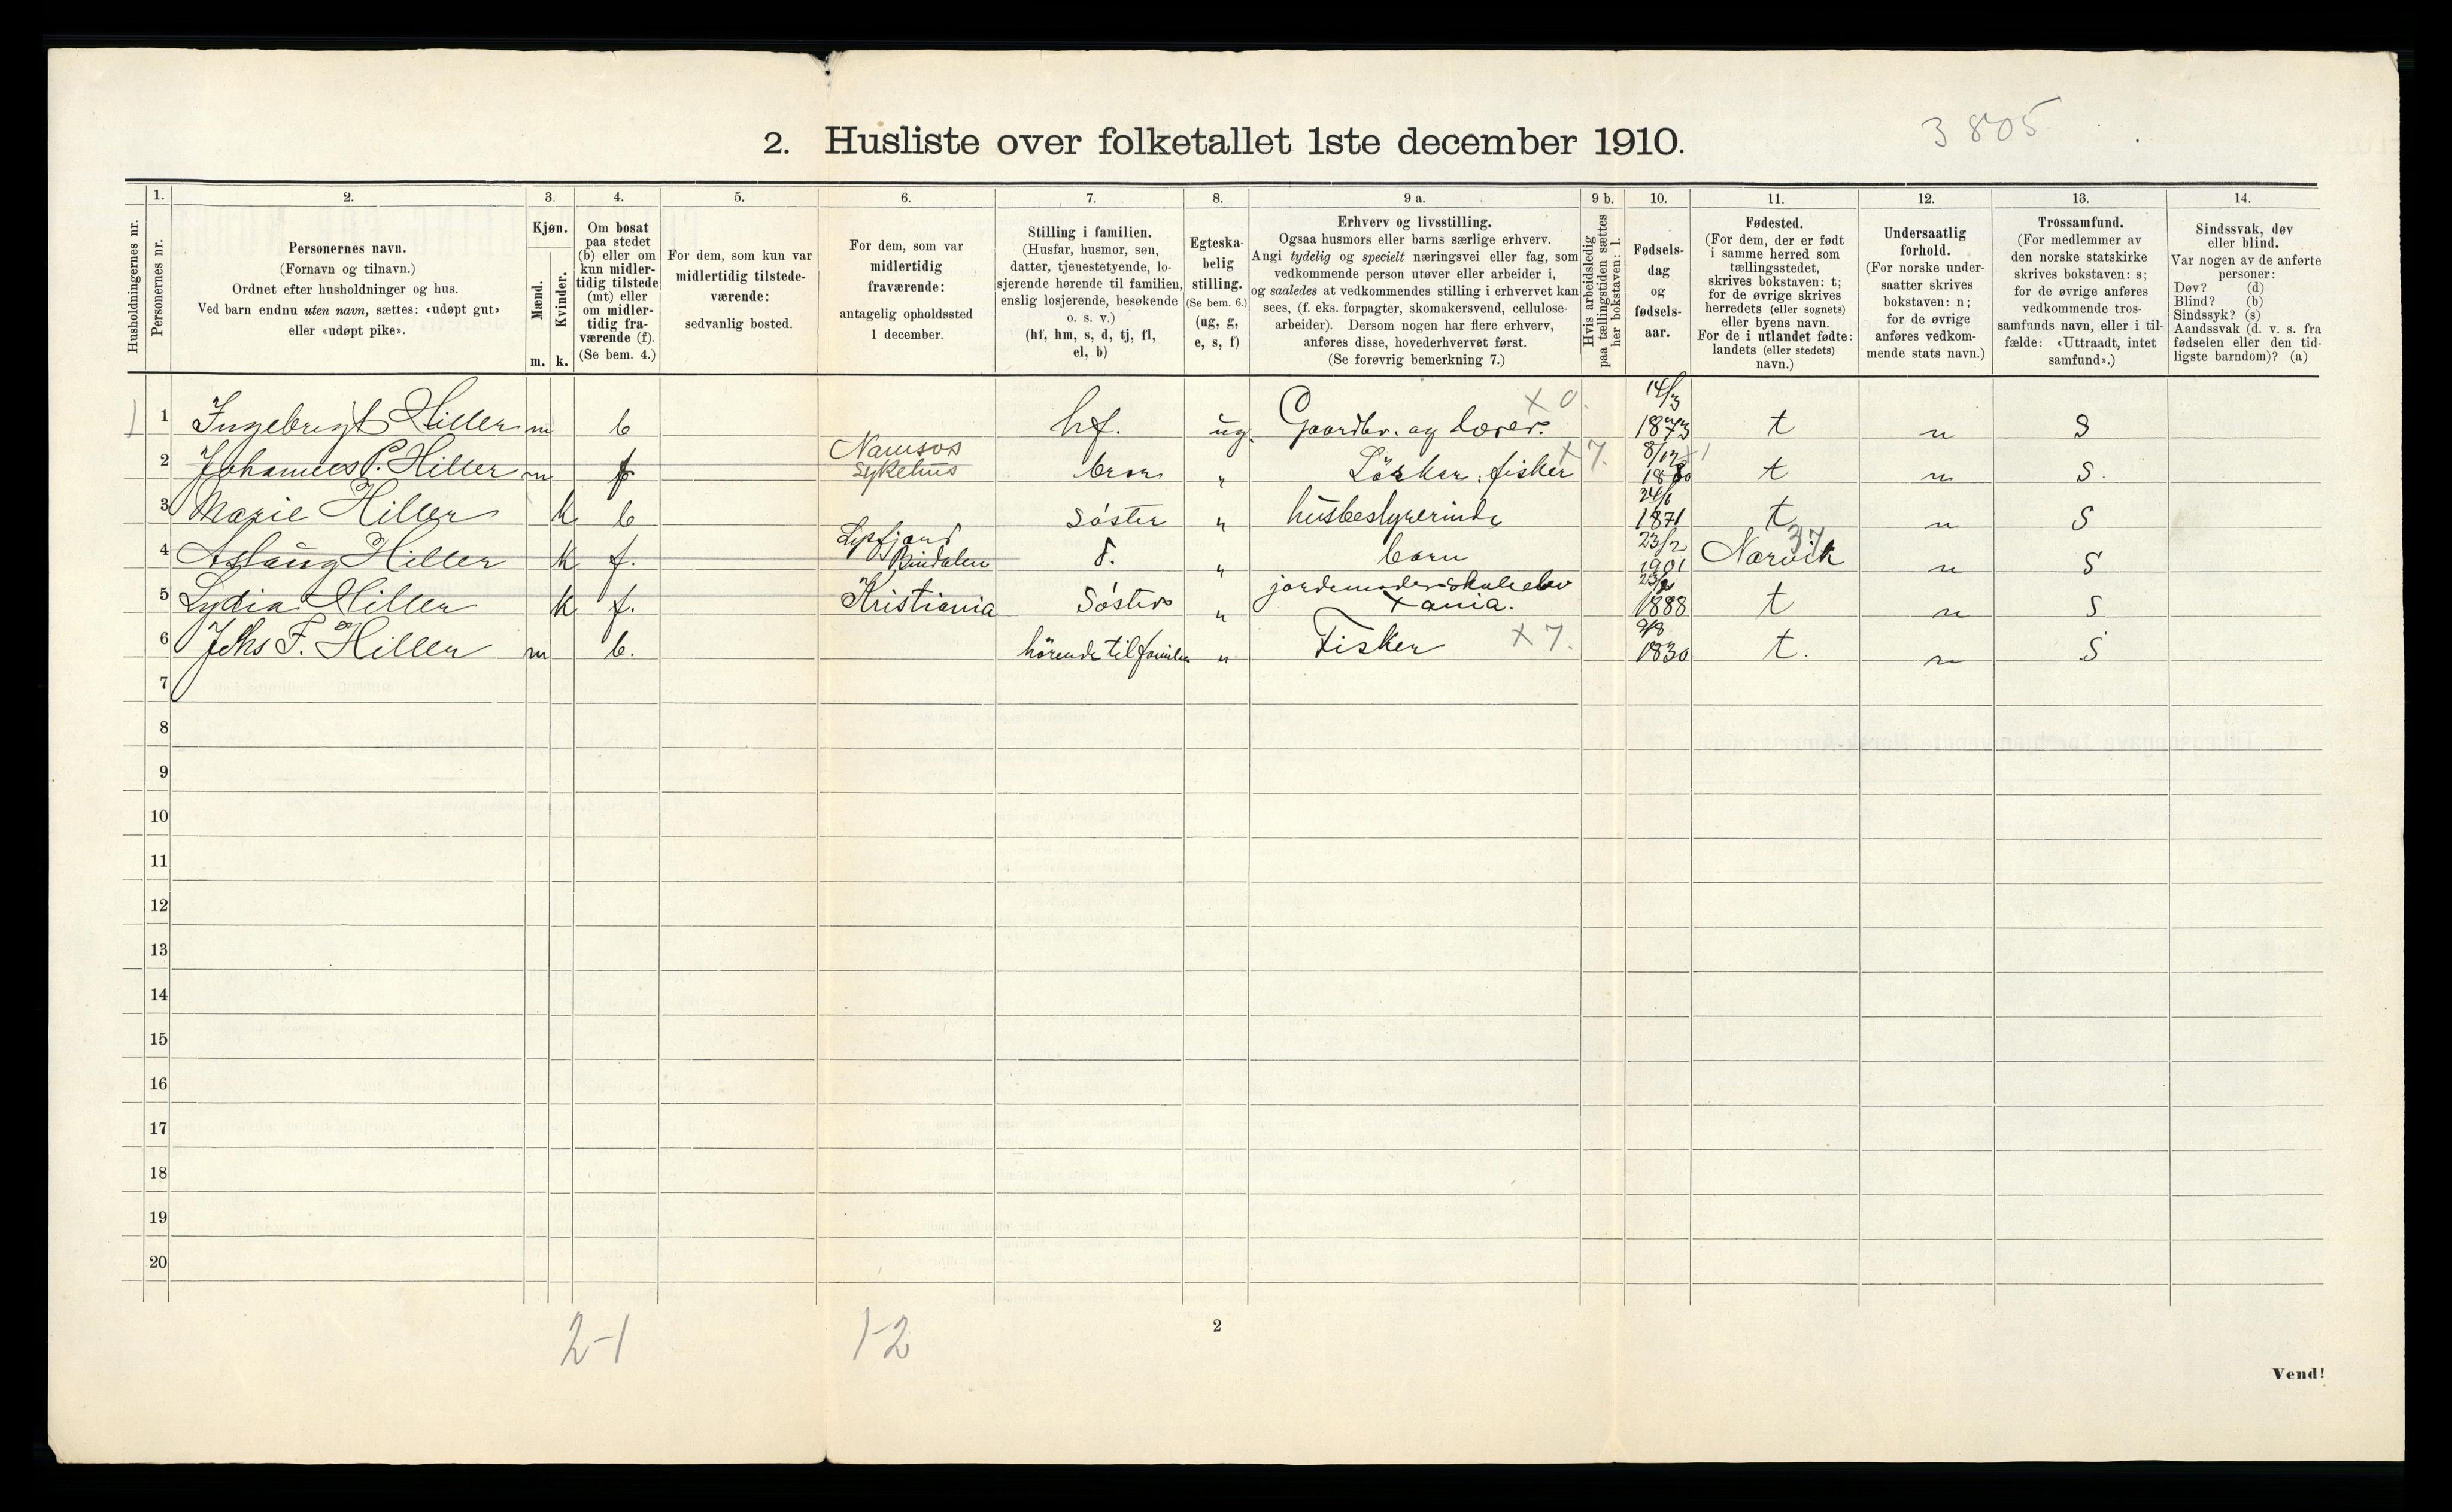 3805
2. Husliste over folketallet 1ste december 1910.
Husholdningernes nr.
1. Personernes nr.
2. Personernes navn.
(Fornavn og tilnavn.)
Ordnet efter husholdninger og hus.
Ved barn endnu uten navn, sættes: «udøpt gut»
eller «udøpt pike».
3. Kjøn.
Mænd. m.
Kvinder. k.
4. Om bosat
paa stedet
(b) eller om
kun midler-
tidig tilstede
(mt) eller
om midler-
tidig fra-
værende (f).
(Se bem. 4.)
5. For dem, som kun var
midlertidig tilstede-
værende:
sedvanlig bosted.
6. For dem, som var
midlertidig
fraværende:
antagelig opholdssted
1 december.
7. Stilling i familien.
(Husfar, husmor, søn,
datter, tjenestetyende, lo-
sjerende hørende til familien,
enslig losjerende, besøkende
o. s. v.)
(hf, hm, s, d, tj, fl,
el, b)
8. Egteska-
belig
stilling.
(Se bem. 6.)
(ug, g,
e, s, f)
9 a. Erhverv og livsstilling.
Ogsaa husmors eller barns særlige erhverv.
Angi tydelig og specielt næringsvei eller fag, som
vedkommende person utøver eller arbeider i,
og saaledes at vedkommendes stilling i erhvervet kan
sees, (f. eks. forpagter, skomakersvend, cellulose-
arbeider). Dersom nogen har flere erhverv,
anføres disse, hovederhvervet først.
(Se forøvrig bemerkning 7.)
9 b. Hvis arbeidsledig
paa tællingstiden sættes
her bokstaven: l.
10. Fødsels-
dag
og
fødsels-
aar.
11. Fødested.
(For dem, der er født
i samme herred som
tællingsstedet,
skrives bokstaven: t;
for de øvrige skrives
herredets (eller sognets)
eller byens navn.
For de i utlandet fødte:
landets (eller stedets)
navn.)
12. Undersaatlig
forhold.
(For norske under-
saatter skrives
bokstaven: n;
for de øvrige
anføres vedkom-
mende stats navn.)
13. Trossamfund.
(For medlemmer av
den norske statskirke
skrives bokstaven: s;
for de øvrige anføres
vedkommende tros-
samfunds navn, eller i til-
fælde: «Uttraadt, intet
samfund».)
14. Sindssvak, døv
eller blind.
Var nogen av de anførte
personer:
Døv? (d)
Blind? (b)
Sindssyk? (s)
Aandssvak (d. v. s. fra
fødselen eller den tid-
ligste barndom)? (a)
1 Ingebrigt Hiller m b hf. ug. Gaardbr. og lærer. x 0. 14/3 1873 t n S
2 Johannes P. Hiller m f Namsos sykehus bror " fisker x 7. 8/12 1880 t n S.
3 Marie Hiller k b Søster " husbestyrerinde 24/6 1871 t n S
4 Aslaug Hiller k f. Bindalen d. " barn 23/2 1901 Narvik 37 n S
5 Lydia Hiller k f. Kristiania Søster " jordemoderskoleelev Xania. 1888 t n S
6 Johs F. Hiller m b. hörende til familien " Fisker x 7. 9/8 1830 t. n S
7
8
9
10
11
12
13
14
15
16
17
18
19
20
2-1 1-2
2
Vend!